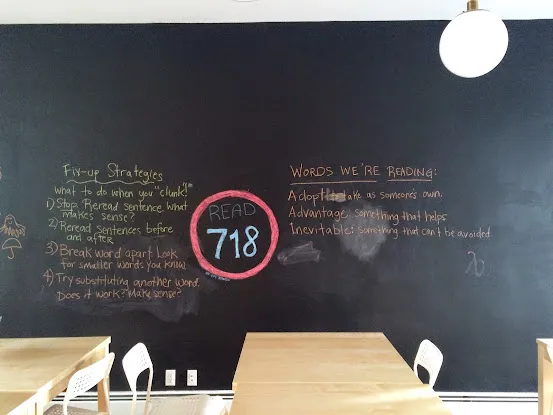 Fix-up Strategies
What to do when you "clunk!"
1) Stop. Reread sentence. What
makes sense?
2) Reread sentences before
and after
3) Break word apart. Look
for smaller words you know
4) Try substituting another word.
Does it work? Make sense?
READ
718
WORDS WE'RE READING:
Adopt: take as someone's own.
Advantage: something that helps
Inevitable: something that can't be avoided.